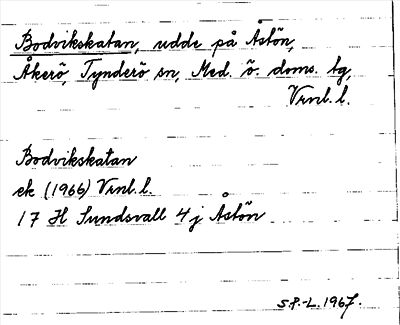 Bodvikskatan, udde på Åstön,
Åkerö, Tynderö sn, Med. ö. doms. tg,
Vrnl. l.
Bodvikskatan
ek (1966) Vrnl. l.
17 H Sundsvall 4 j Åstön
S.P.-L. 1967.